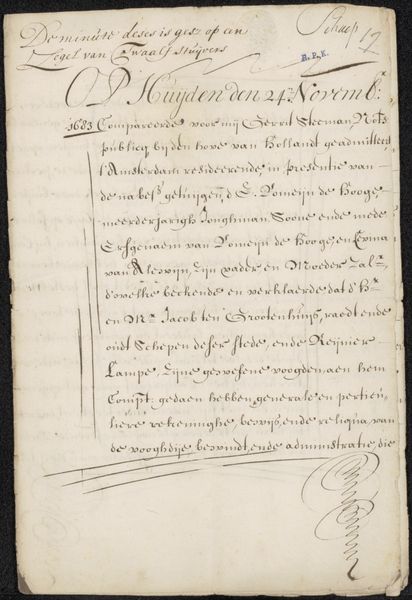 De minute deses is gesz. op een
Zegel van Twaalf stuyvers
Schaep 12
B.P.R.
OP Huyden den 24.n Novemb.r
1683 Compareerde voor mij Gerrit Steeman Not.s
publicq bij den hove van Hollandt geadmitteert
t'Amsterdam resideerende, in presentie van-
de nabes. getuijgen, d' E. Romeijn de Hooge
meerderjarigh Jonghman Soone ende mede
Erfgenaem van Romeijn de Hooge, en Emma
van Alewijn, Zijn vader en Moeder Zalr.
d'welke bekende en verklaerde dat d' Hr.
en Mr. Jacob ten Grootenhuijs, raedt ende
oudt Schepen deser stede, ende Reijnier
Lampe, Zijne geweesene vooghden aen hem
Compt. gedaen hebben generale en perticu-
liere rekeninghe, bewijs, ende reliqua, van
de vooghdije, bewindt, ende administratie, die